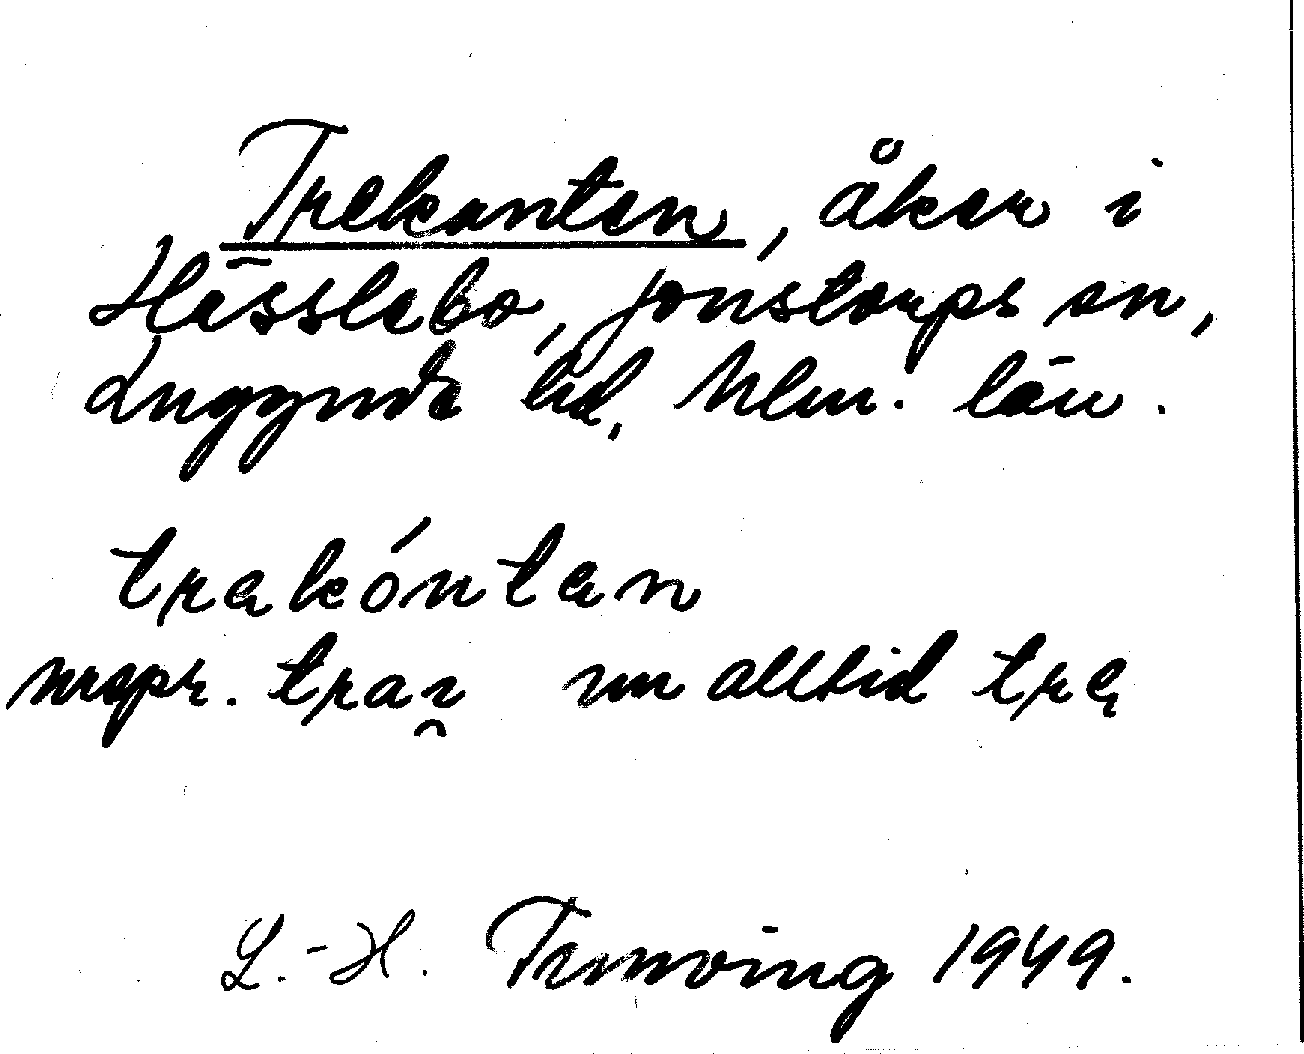 Trekanten, åker i
Hässlebo, Jonstorps sn,
Luggude hd, Mlm. län.
trakóntan
urspr. trai nu alltid træ
L.-H. Ternving 1949.